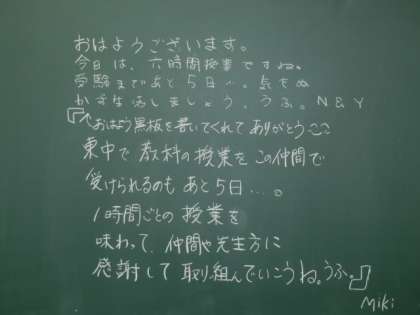 おはようございます。
今日は、六時間授業ですね。
受験まであと5日…。気をぬ
かず生活しましょう、うふ。N & Y
おはよう黒板を書いてくれてありがとう
東中で教科の授業をこの仲間で
受けられるのもあと5日…。
1時間ごとの授業を
味わって、仲間や先生方に
感謝して取り組んでいこうね。うふ。
Miki